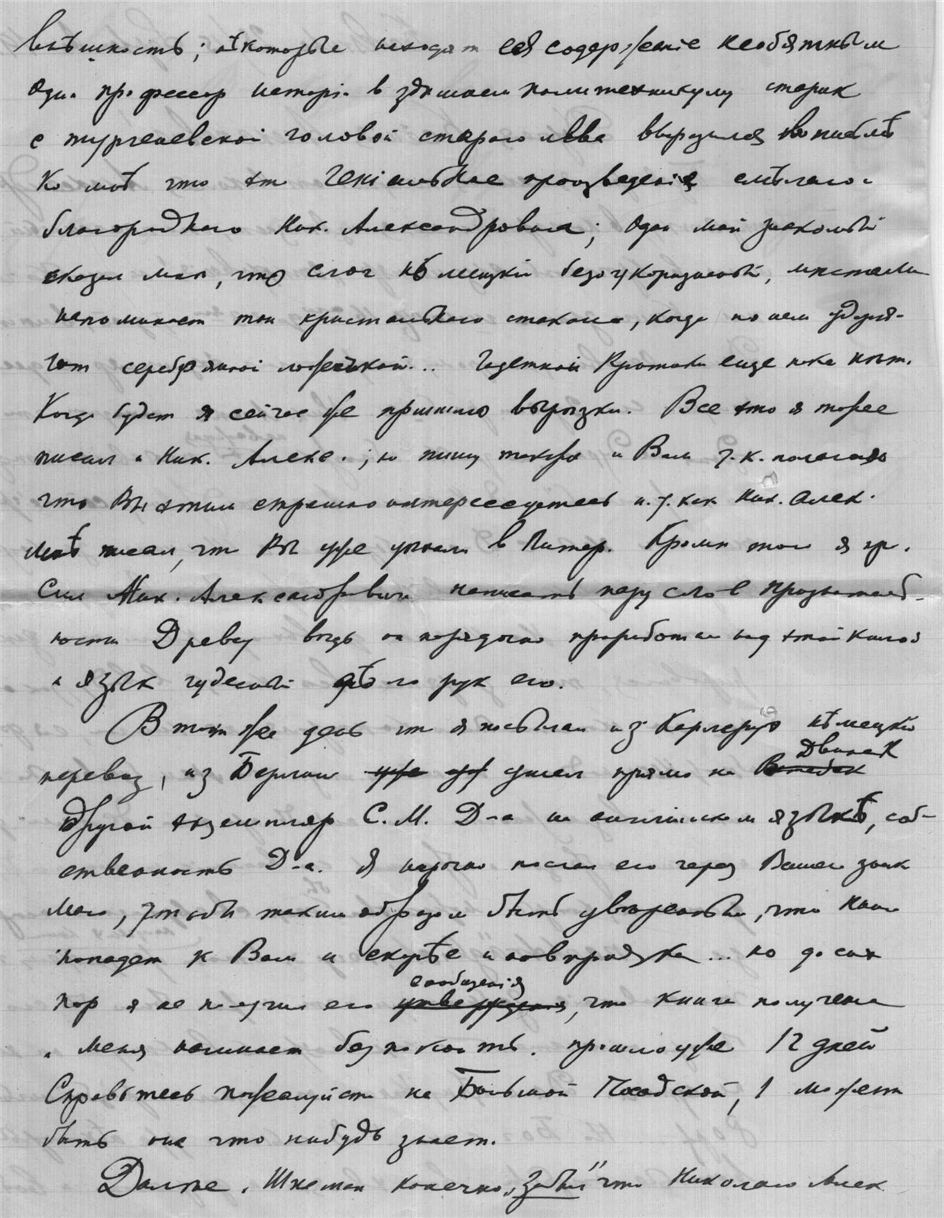 внѣшность; нѣкоторые находят ея содержаніе необъятным
Один профессор исторіи в здѣшнем политехникуму старик
с тургеневской головой стараго льва выразился
ко мнѣ что это геніальное произведенія смѣлаго и
благороднаго Ник. Александровича; один мой знакомый
сказал мнѣ, что слог нѣмецкій безукоризненный, мѣстами
напоминает тон кристальнаго стакана, когда по нем ударя-
ют серебряной ложечкой... Газетной Критики еще пока нѣт.
Когда будет я сейчас же пришлю вырѣзки. Все это я тоже
писал и Ник. Алекс.; но пишу также и Вам т.к. полагаю
что Вы этим страшно интересуетесь и т. как Ник. Алек.
мнѣ писал, что Вы уже уѣхали в Питер. Кромѣ того я про-
сил Ник. Александровича написать пару слов признатель-
ности Древсу вѣдь он порядочно проработал над этой книгой
и язык чудесный дѣло рук его.
В тот же день что я посылал из Карлсруэ нѣмецкій
перевод, из Берлина ушел прямо на Двинск
другой экземпляр С.М. Д-а на англійском языкѣ, соб-
ственность Д-а. Я нарочно послал его через Вашего знак
маго, чтобы таким образом быть увѣренным, что книга
попадет к Вам и скорѣе и навпрядка... но до сих
пор я не получил его сообщенія, что книга получена
и меня начинает безпокоить. прошло уже 12 дней
Справьтесь пожалуйста на Большой Посадской, 1 может
быть она что нибудь знает.
Далѣе, Шкеман конечно „забыл" что Николаю Алек